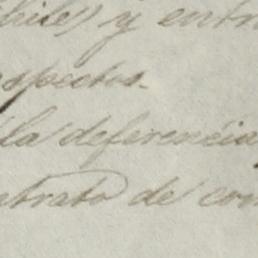 hile) y entr
spectos.
la deferencia
trato de con